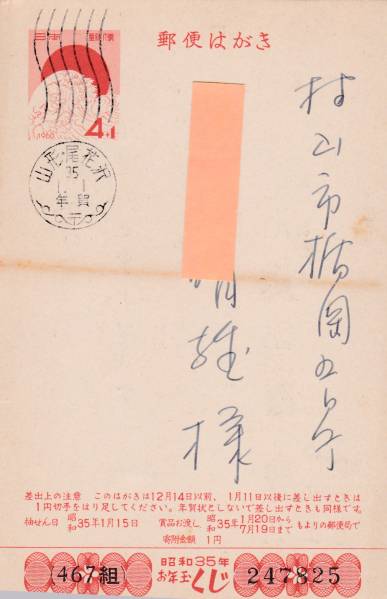 郵便はがき
1960
4+1
山形・尾花沢
35
1.1
年賀
村山市楯岡五日町
雄様
差出上の注意 このはがきは12月14日以前、1月11日以後に差し出すときは
1円切手をはり足してください。年賀状としないで差し出すときも同様です。
抽せん日 昭和35年1月15日 賞品お渡し 昭和35年 1月20日から 7月19日まで もよりの郵便局で
寄附金額 1円
昭和35年
467組 お年玉くじ 247825